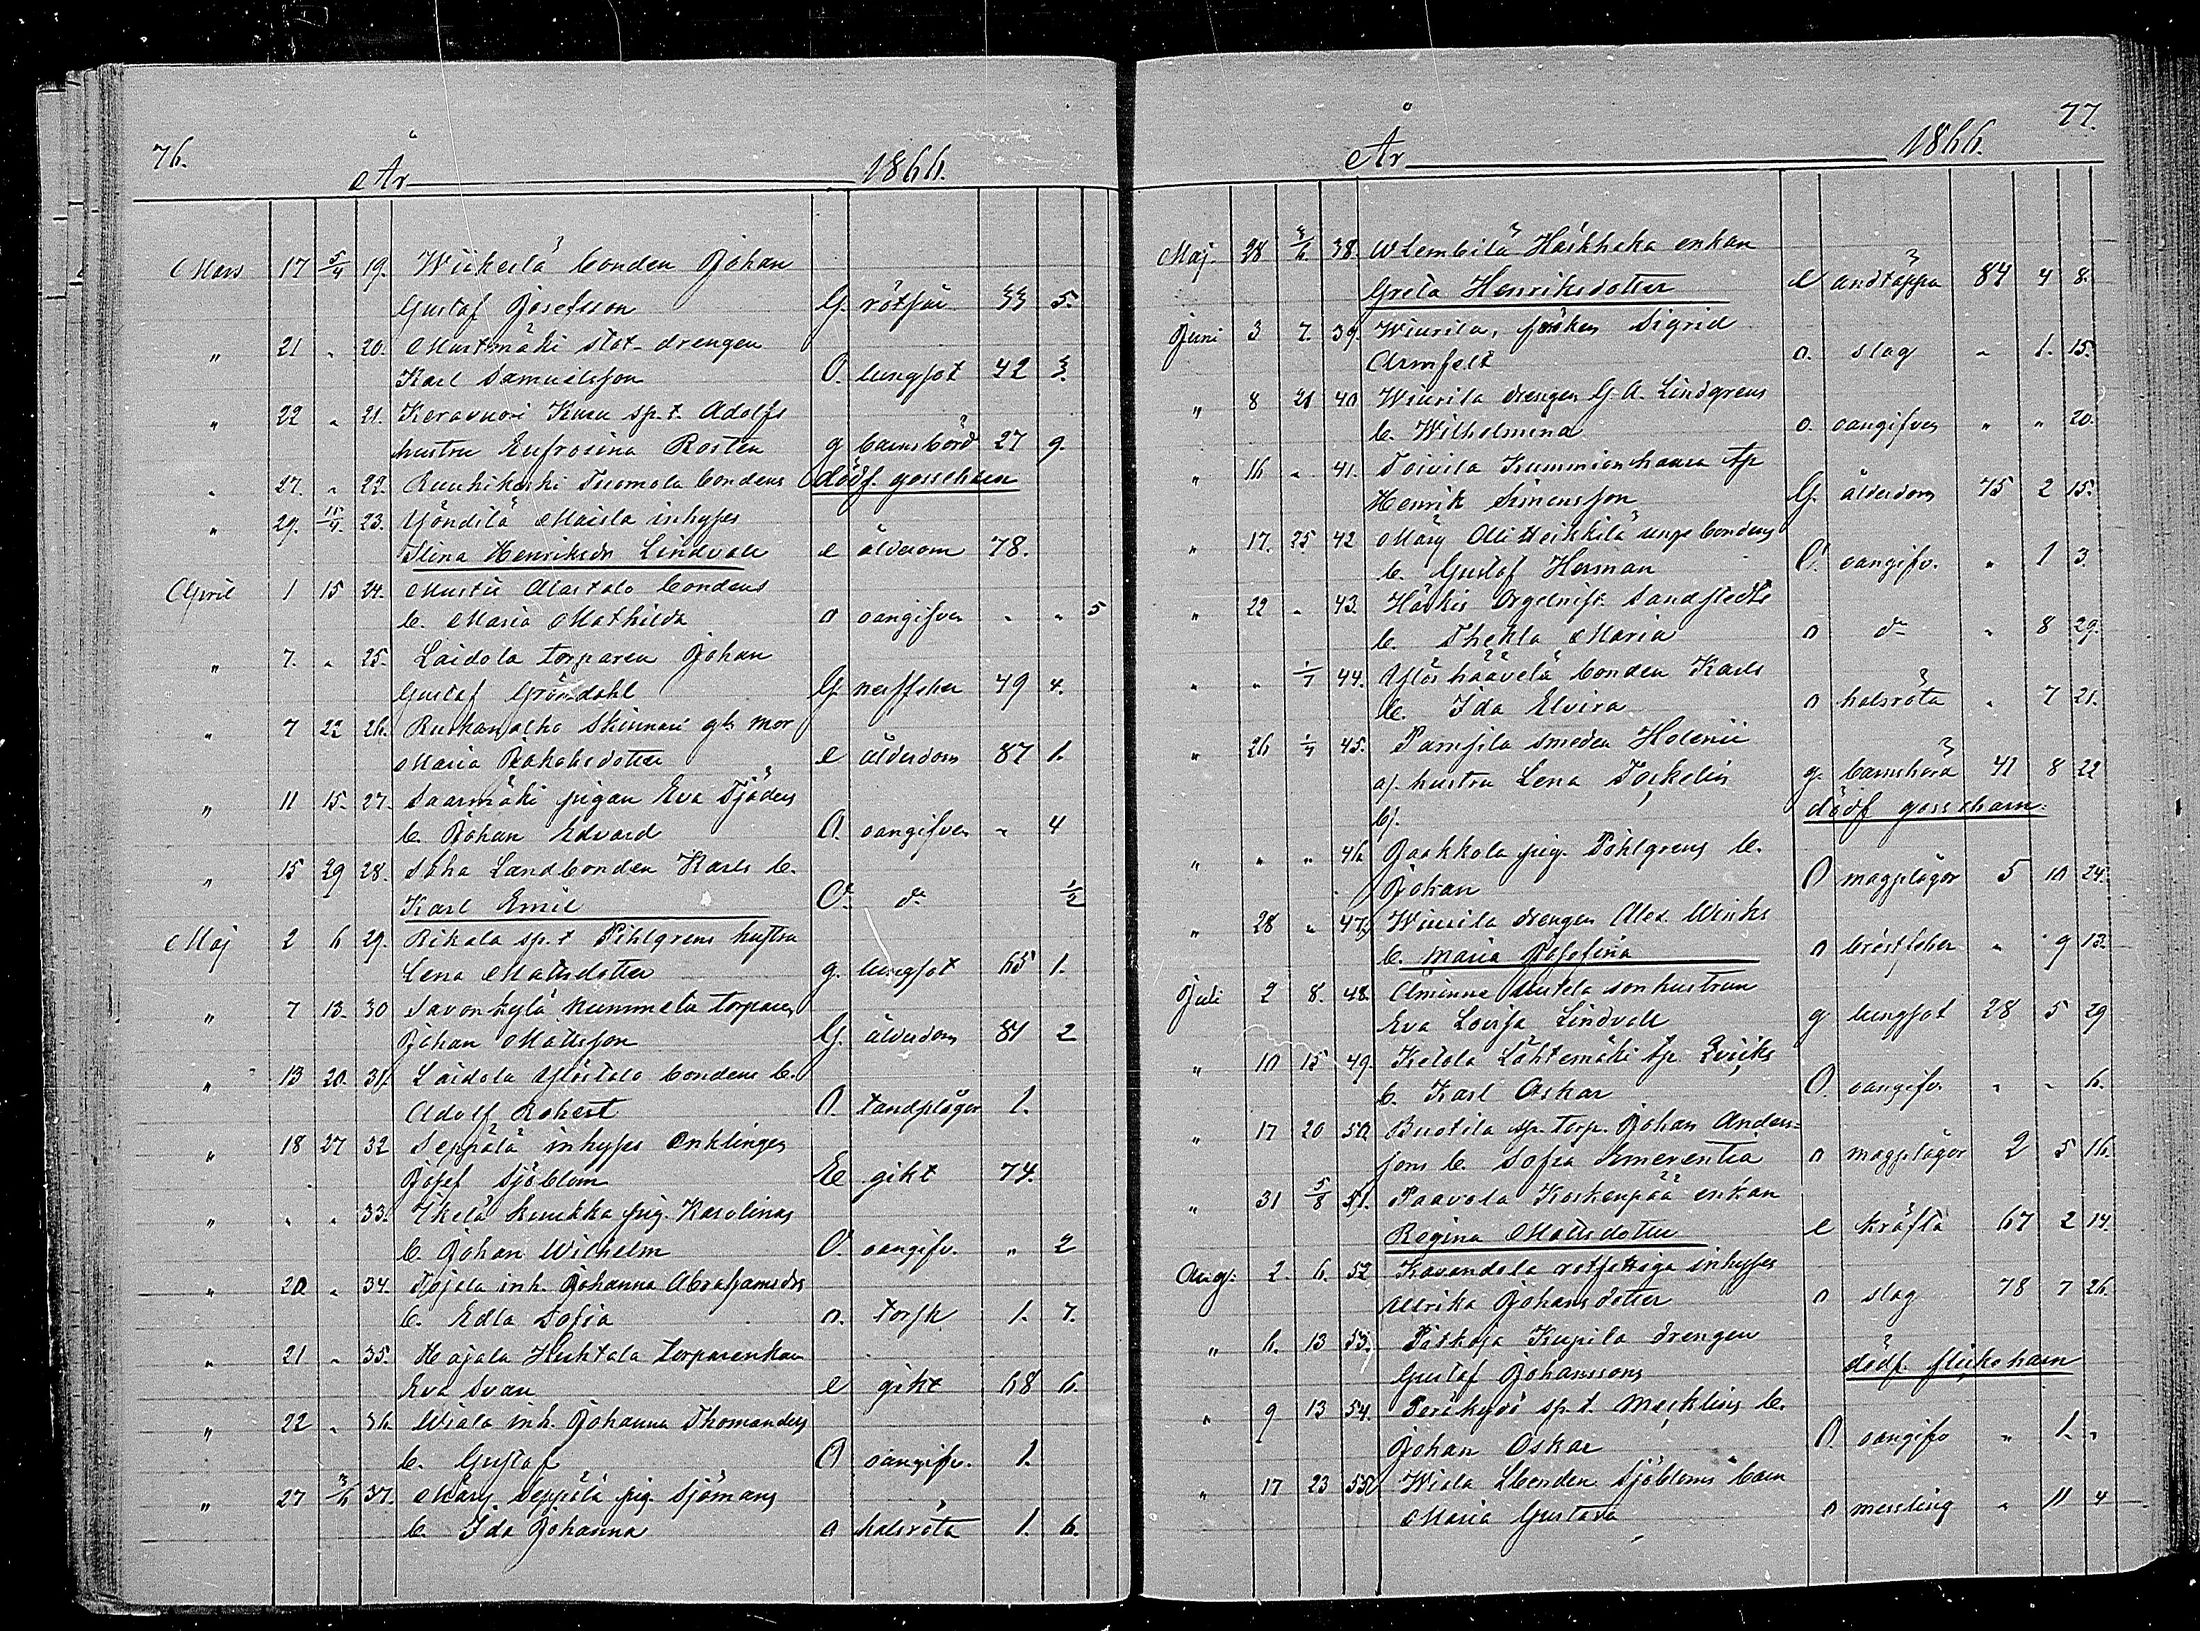 76.
År 1866.
Mars 17 5/4 19. Wiikeilä bonden Johan
Gustaf Josefsson G. rötfär 33 5.
" 21 " 20. Mustmäki stat-drengen
Karl Samuelsson O. lungsot 42 3.
" 22 " 21. Keravuori Kuru sp.t. Adolfs
hustru Eufrosina Rosten g barnsbörd 27 9.
" 27. " 22. Ruuhikoski Tuomola bondens dödf. gossebarn
" 29. 15/4 23. Yöndilä Maisla inhyses
Stina Henriksdr Lindvall e ålderdom 78.
April 1 15 24. Mustii Alastalo bondens
b. Maria Mathilda o oangifven " " 5
" 7. " 25. Laidola torparen Johan
Gustaf Gröndahl G. nerffeber 49 4.
" 7 22 26. Ruskanalho Skinnari gb. mor
Maria Jakobsdotter e ålderdom 87 1.
" 11 15. 27. Saarmäki pigan Eva Sjödens
b. Johan Edvard O. oangifven " 4
" 15 29 28. Saha Landbonden Karls b.
Karl Emil O. do 1/2
Maj 2 6 29. Rikala sp.t Pihlgrens hustru
Lena Matsdotter g. lungsot 65 1.
" 7 13. 30 Savonkylä Nummela torparen
Johan Matsson G. ålderdom 81 2
" 13 20. 31. Laidola Ylistalo bondens b.
Adolf Robert O. tandplågor 1.
" 18 27 32 Seppälä inhyses Enklingen
Josef Sjöblom E gikt 74.
" " " 33. Ikelä kuukka pig. Karolinas
b. Johan Wilhelm O. oangifv. " 2
" 20 " 34. Tojala inh. Johanna Abrahamsdrs
b. Edla Sofia o. torsk 1. 7.
" 21 " 35. Hajala Huhtala torparenkan
Eva Svan e gikt 68 6.
" 22 " 36. Wiala inh. Johanna Thomanders
b. Gustaf O oangifv. 1.
" 27 3/6 37. Märy Seppälä pig. Sjömans
b. Ida Johanna o halsröta 1. 6.
77.
År 1866.
Maj. 28 3/6 38. Wlembilä Haikhaka enkan
Greta Henriksdotter e andtäppa 84 4 8.
Juni 3 7. 39. Wiurila, fröken Sigrid
Armfelt o. slag " 1. 15.
" 8 21 40 Wiurila drengen G. A. Lindgrens
b. Wilhelmina o. oangifven " " 20.
" 16 " 41. Toivila Kummionhaara tp
Henrik Simonsson G. ålderdom 75 2 15.
" 17. 25 42 Märy Olli Heikkilä unge bondens
b. Gustaf Herman O. oangifv. " 1 3.
" 22 " 43. Häskis Orgelnist. Sandstedts
b. Thekla Maria o do " 8 29.
" " 1/7 44. Ylöshäävelä bonden Karls
b. Ida Elvira o halsröta " 7 21.
" 26 1/7 45. Pamfila smeden Holenii
a/. hustru Lena Torkelin g. barnsbörd 41 8 22
b/. dödf. gossebarn.
" " " 46. Jaakkola pig. Pihlgrens b.
Johan O magplågor 5 10 24.
" 28 " 47. Wiurila drengen Alex. Winks
b. Maria Josefina o bröstfeber " 9 13.
Juli 2 8. 48. Åminne Uutela sonhustrun
Eva Lovisa Lindvall g lungsot 28 5 29
" 10 15 49. Ketola Lähtemäki tp. Qviiks
b. Karl Oskar O. oangifv. " " 6.
" 17 20 50. Buotila sp. torp. Johan Anders=
sons b. Sofia Emerentia o magplågor 2 5 16.
" 31 5/8 51. Paavola Koskenpää enkan
Regina Matsdotter e kräfta 67 2 14.
Aug. 2. 6. 52. Kavandola rotfattiga inhyses
Ulrika Johansdotter o slag 78 7 26.
" 6. 13 53. Pitkoja Kupila drengen
Gustaf Johanssons dödf. flickebarn
" 9 13 54. Peräkylä sp.t. Mecklins b.
Johan Oskar O. oangifv " 1. "
" 17 23 55. Wiala Lbonden Sjöbloms barn
Maria Gustava o messling " 11 4